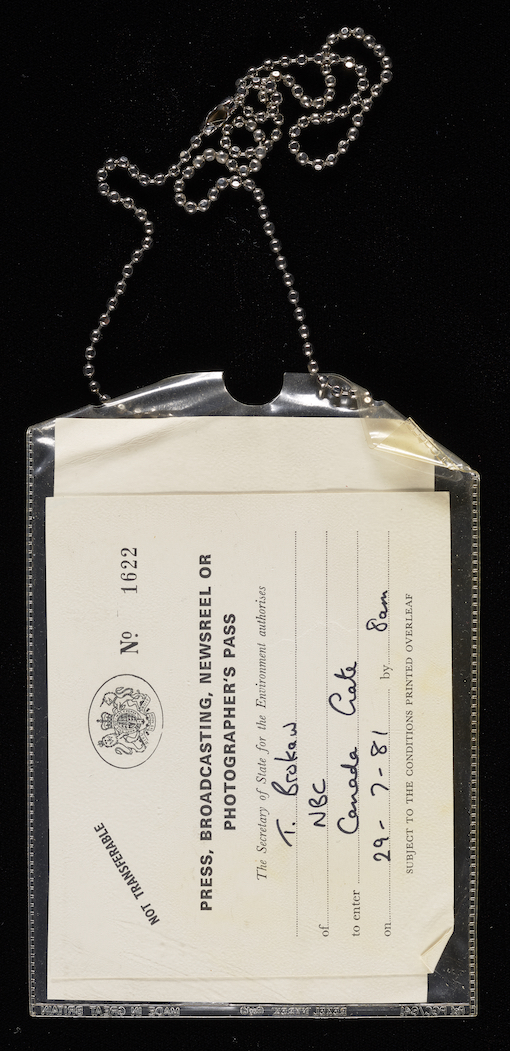 NOT TRANSFERABLE
Nº 1622
PRESS, BROADCASTING, NEWSREEL OR
PHOTOGRAPHER'S PASS
The Secretary of State for the Environment authorises
T. Brokaw
of NBC
to enter Canada Gate
on 29-7-81 by 8am
SUBJECT TO THE CONDITIONS PRINTED OVERLEAF
MADE IN GREAT BRITAIN